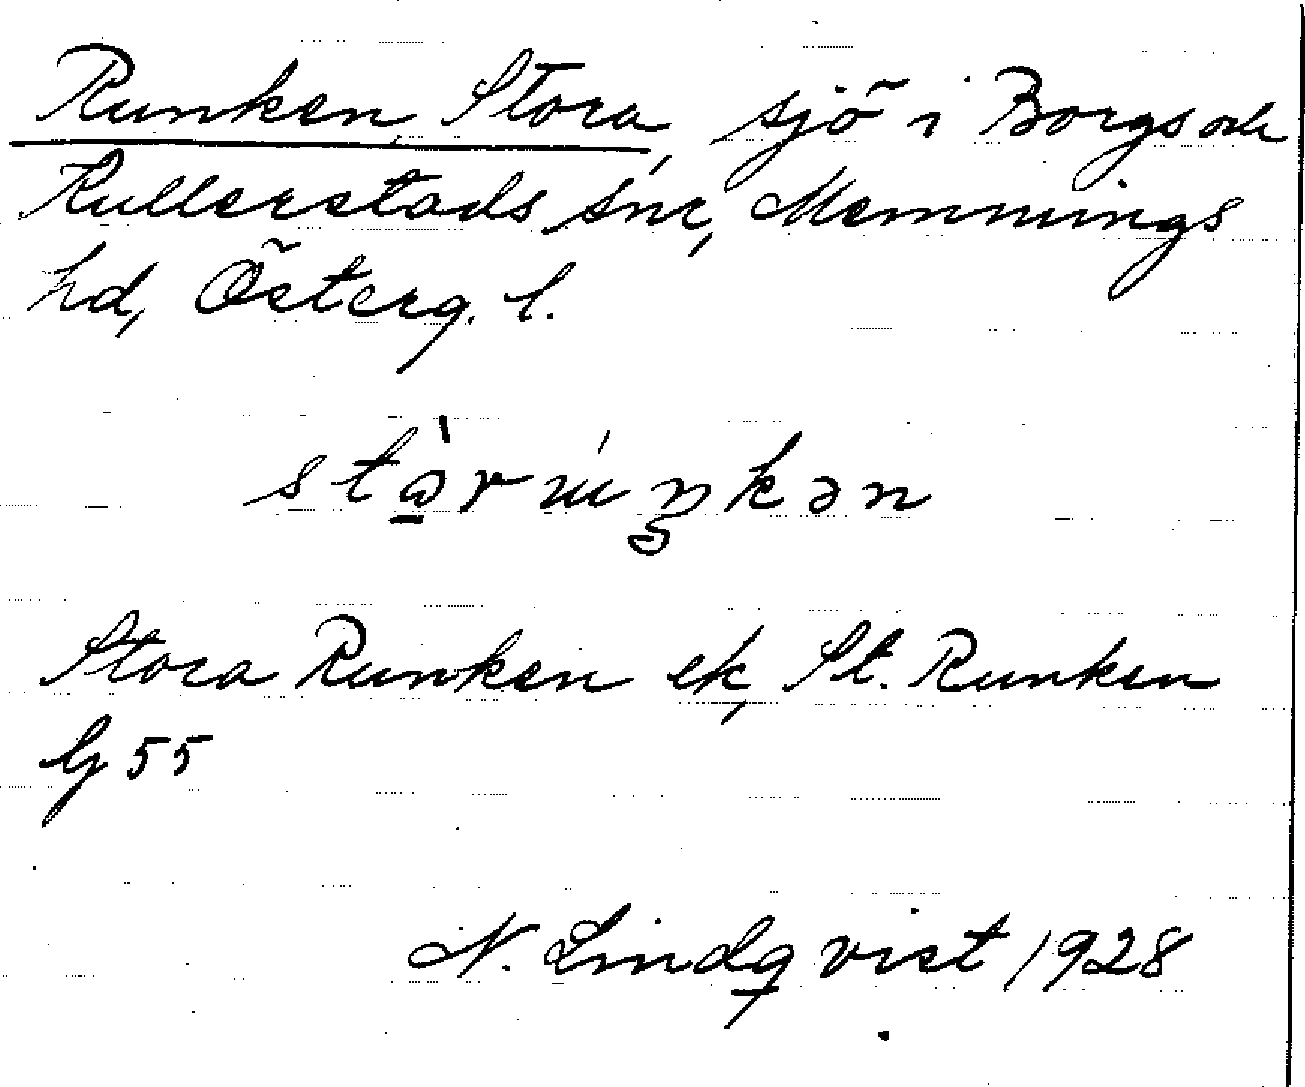 Runken, Stora, sjö i Borgs och
Kullerstads snr, Memmings
hd, Österg. l.
stò̱rúŋkən
Stora Runken ek, St. Runken
G 55
N. Lindqvist 1928